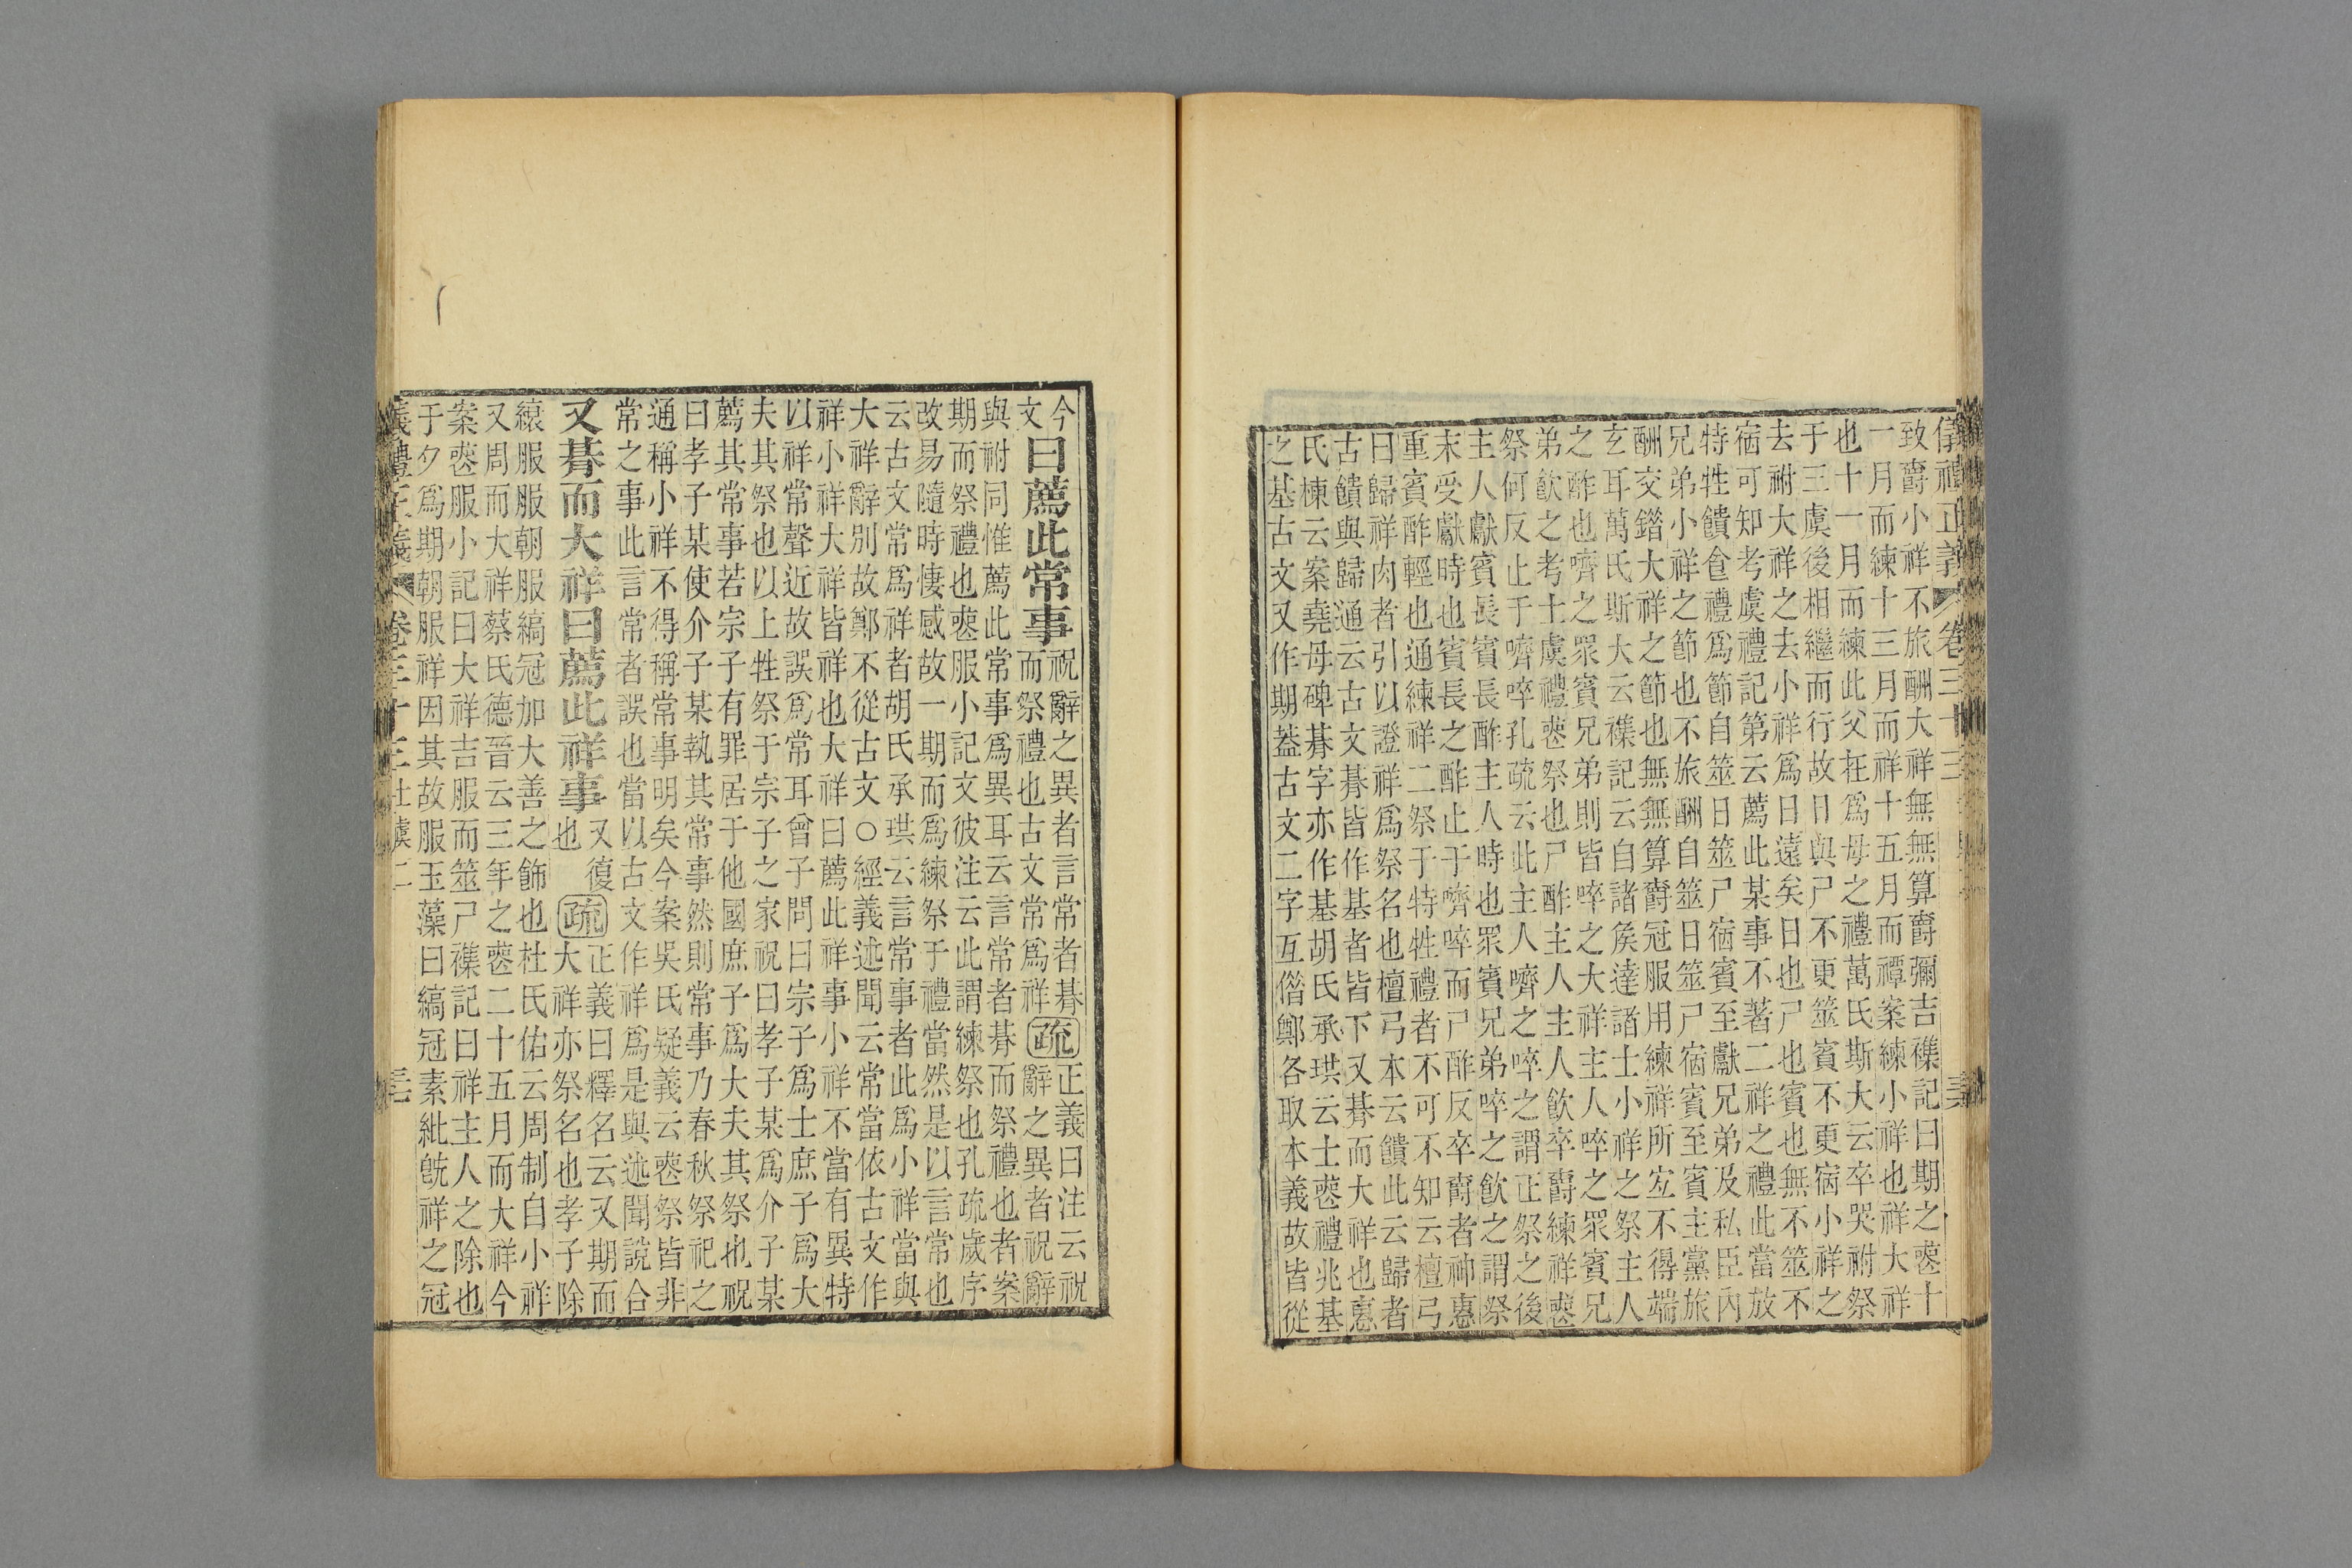 儀禮正義 卷三十三
致爵小祥不旅酬大祥無無算爵彌吉襍記曰期之喪十
一月而練十三月而祥十五月而禫案練小祥也祥大祥
也十一月而練此父在爲母之禮萬氏斯大云卒哭祔祭
于三虞後相繼而行故日與尸不更筮賓不更宿小祥之
去祔大祥之去小祥爲日遠矣日也尸也賓也無不筮不
宿可知考虞禮記第云薦此某事不著二祥之禮此當放
特牲饋食禮爲節自筮日筮尸宿賓至獻兄弟及私臣內
兄弟小祥之節也不旅酬自筮日筮尸宿賓至賓主黨旅
酬交錯大祥之節也無無算爵冠服用練祥所宜不得端
玄耳萬氏斯大云襍記云自諸侯達諸士小祥之祭主人
之酢也嚌之眾賓兄弟則皆啐之大祥主人啐之眾賓兄
弟飲之考士虞禮喪祭也尸酢主人主人飲卒爵練祥喪
祭何反止于嚌啐孔疏云此主人嚌之啐之謂正祭之後
主人獻賓長賓長酢主人時也眾賓兄弟啐之飲之謂祭
末受獻時也賓長之酢止于嚌啐而尸酢反卒爵者神惠
重賓酢輕也通練祥二祭于特牲禮者不可不知云檀弓
曰歸祥肉者引以證祥爲祭名也檀弓本云饋此云歸者
古饋與歸通云古文朞皆作基者皆下又朞而大祥也惠
氏棟云案堯母碑朞字亦作基胡氏承珙云士喪禮兆基
之基古文又作期葢古文二字互偝鄭各取本義故皆從
今文曰薦此常事祝辭之異者言常者朞而祭禮也古文常爲祥疏正義曰注云祝辭之異者祝辭
與祔同惟薦此常事爲異耳云言常者朞而祭禮也者案
期而祭禮也喪服小記文彼注云此謂練祭也孔疏歲序
改易隨時悽感故一期而爲練祭于禮當然是以言常也
云古文常爲祥者胡氏承珙云言常事者此爲小祥當與
大祥辭別故鄭不從古文○經義述聞云常當依古文作
祥小祥大祥皆祥也大祥曰薦此祥事小祥不當有異特
以祥常聲近故誤爲常耳曾子問曰宗子爲士庶子爲大
夫其祭也以上牲祭于宗子之家祝曰孝子某爲介子某
薦其常事若宗子有罪居于他國庶子爲大夫其祭也祝
曰孝子某使介子某執其常事然則常事乃春秋祭祀之
通稱小祥不得稱常事明矣今案吳氏疑義云喪祭皆非
常之事此言常者誤也當以古文作祥爲是與述聞說合
又朞而大祥曰薦此祥事又復也疏正義曰釋名云又期而大祥亦祭名也孝子除
縗服服朝服縞冠加大善之飾也杜氏佑云周制自小祥
又周而大祥蔡氏德晉云三年之喪二十五月而大祥今
案喪服小記曰大祥吉服而筮尸襍記曰祥主人之除也
于夕爲期朝服祥因其故服玉藻曰縞冠素紕旣祥之冠